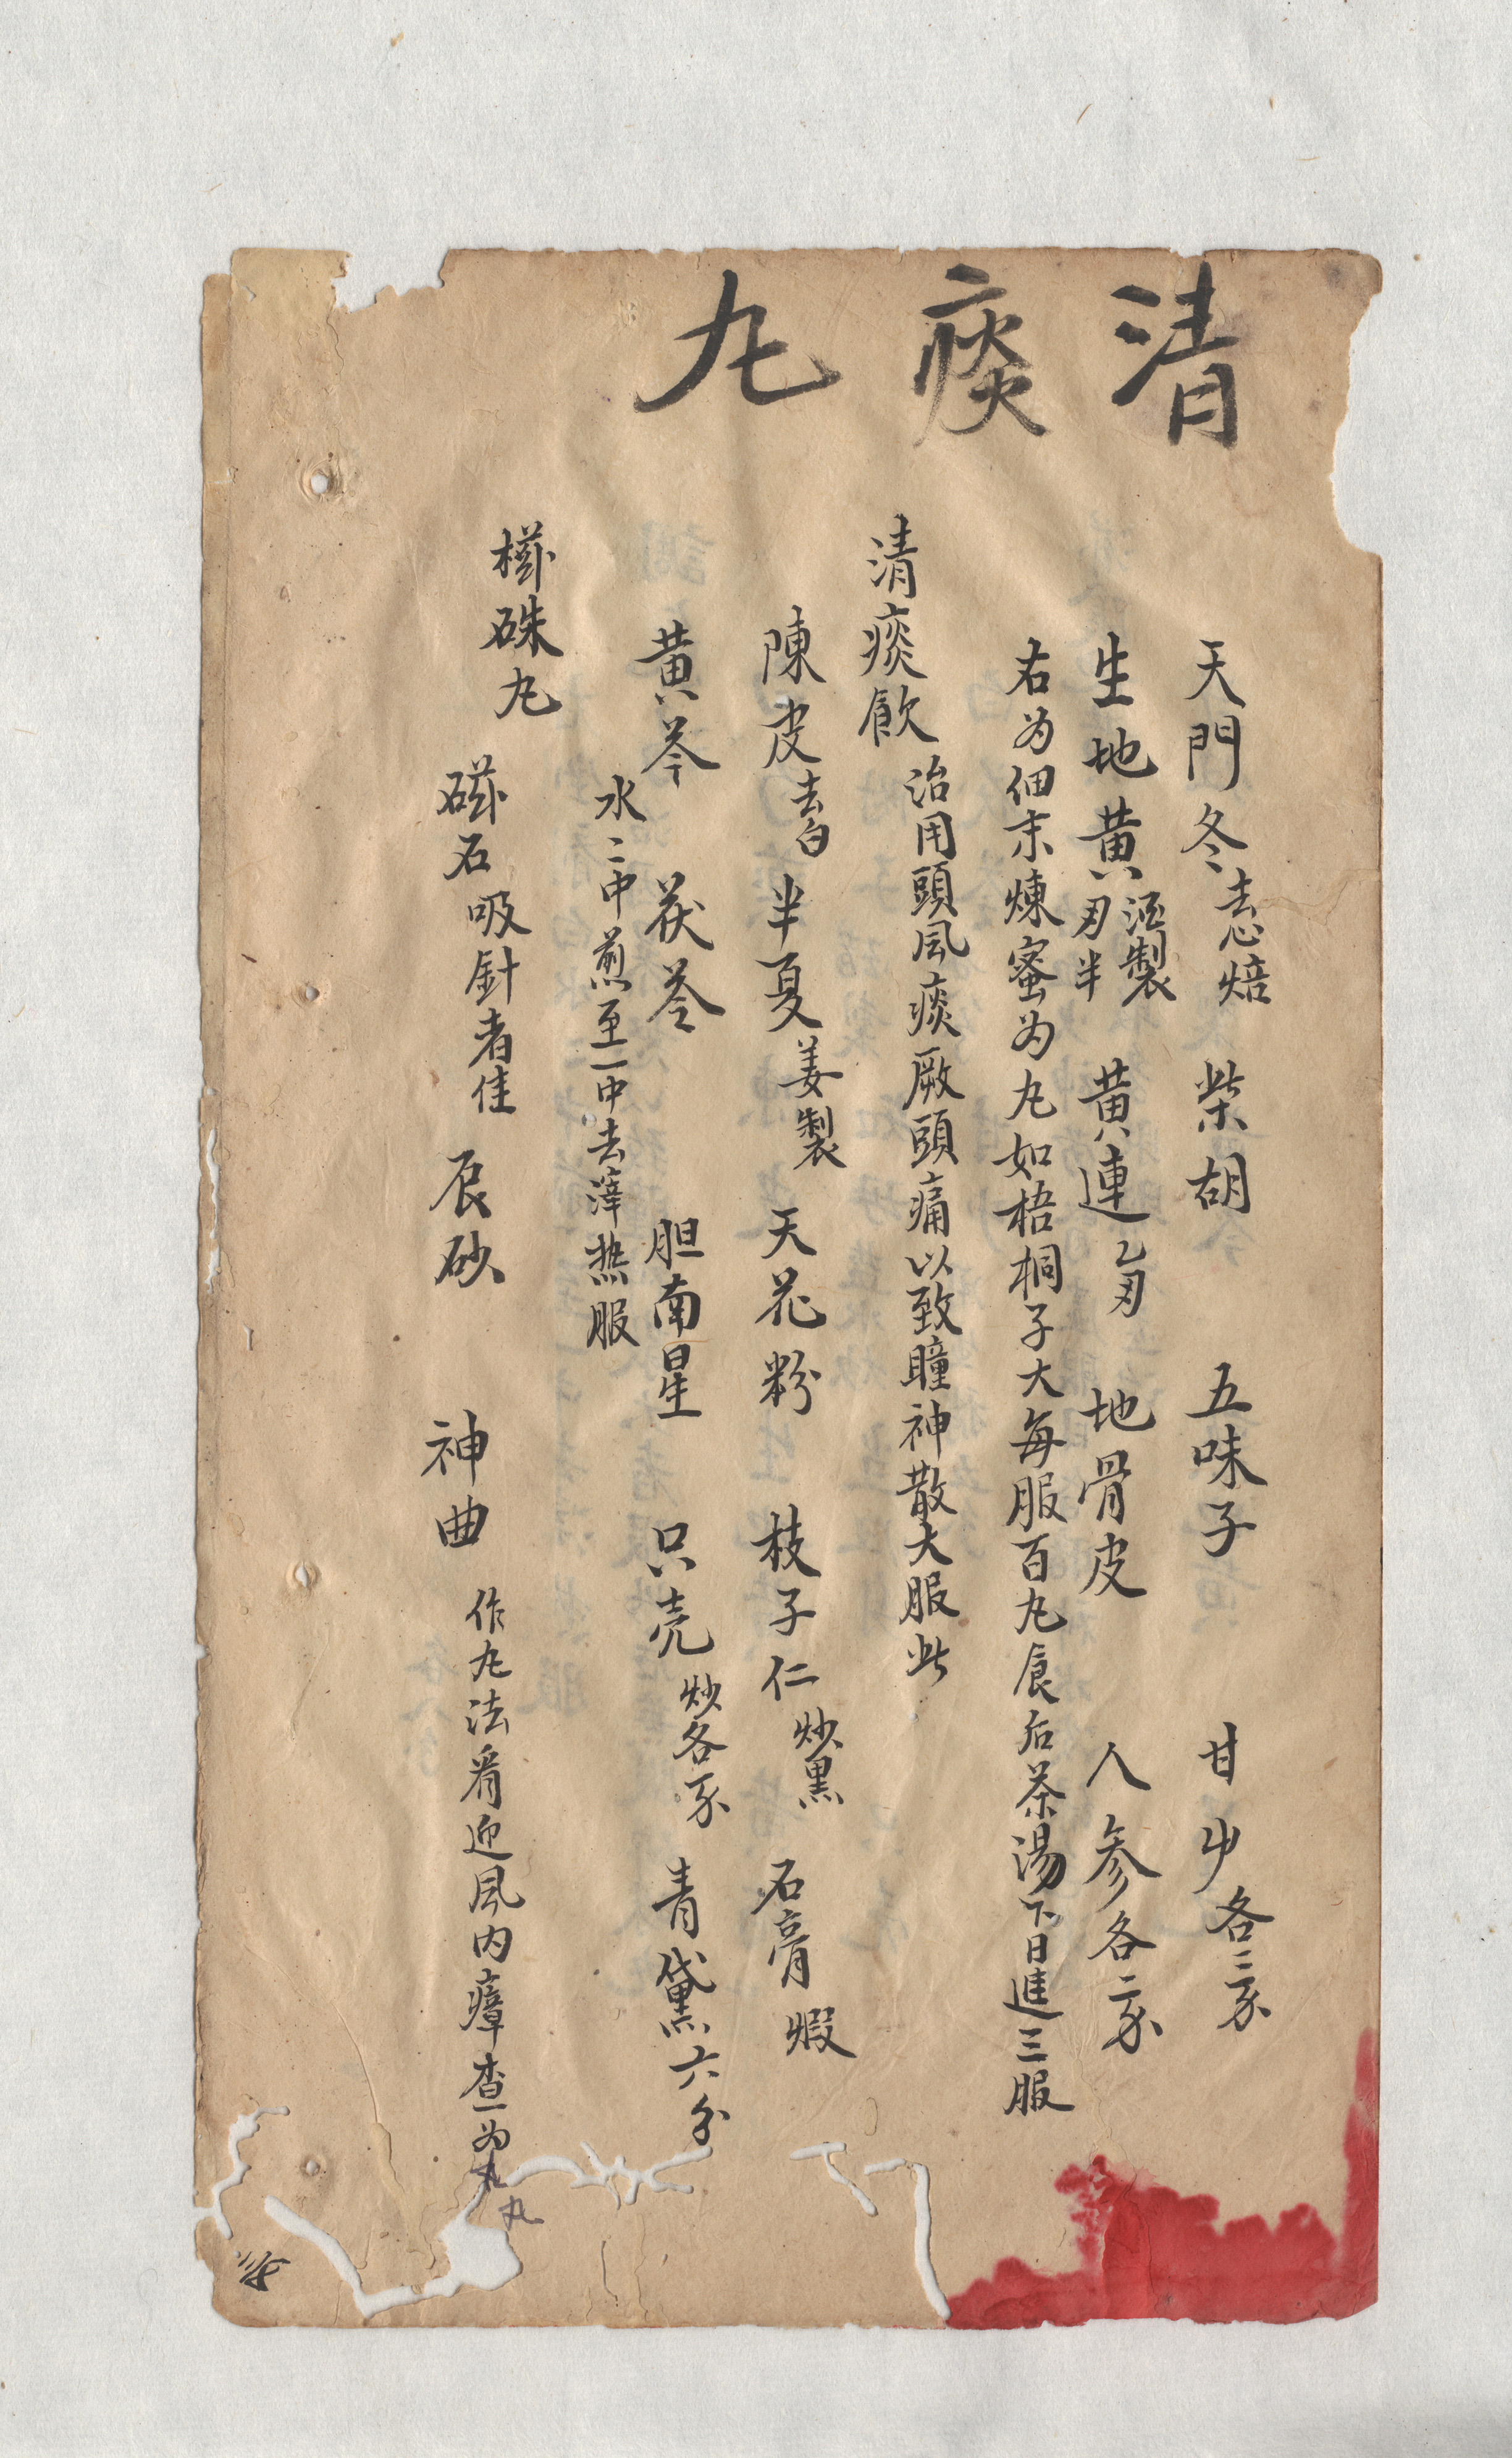 清痰丸
天門冬去心焙 柴胡 五味子 甘屮各三彖
生地黄酒製 刄半 黄連乙刄 地骨皮 人参各二彖
右为佃末煉蜜为丸如梧桐子大每服百丸食后茶湯下日進三服
清痰飲 治用頭風痰厥頭痛以致瞳神散大服此
陳皮去白 半夏姜製 天花粉 枝子仁炒黑 石膏煆
黄芩 茯苓 胆南星 只壳炒各彖 青黛六分
水二中煎至一中去滓热服
硃丸
磁石吸針者佳 辰砂 神曲 作丸法看迎風内瘴查一为丸
丸